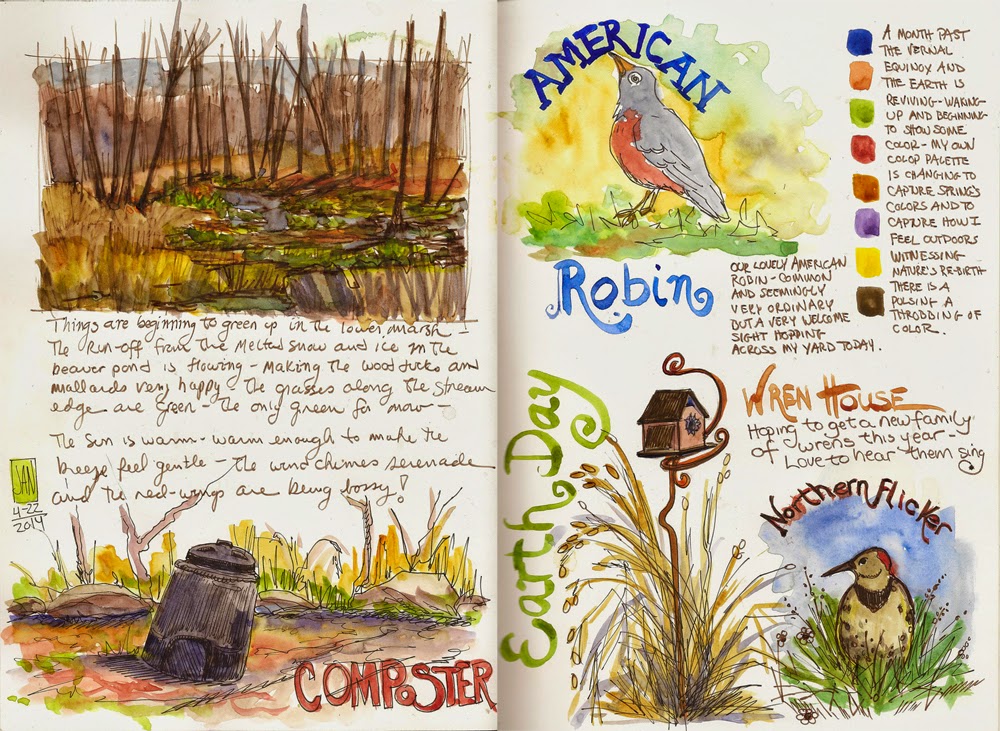 Things are beginning to green up in the lower marsh -
The run-off from the melted snow and ice in the
beaver pond is flowing - making the wood ducks and
mallards very happy. The grasses along the stream
edge are green - the only green for now -
The sun is warm - warm enough to make the
breeze feel gentle - the wind chimes serenade
and the red-wings are being bossy!
JAN
4-22
2014
COMPOSTER
AMERICAN
Robin
OUR LOVELY AMERICAN
ROBIN - COMMON
AND SEEMINGLY
VERY ORDINARY
BUT A VERY WELCOME
SIGHT HOPPING
ACROSS MY YARD TODAY.
A MONTH PAST
THE VERNAL
EQUINOX AND
THE EARTH IS
REVIVING - WAKING
UP AND BEGINNING
TO SHOW SOME
COLOR - MY OWN
COLOR PALETTE
IS CHANGING TO
CAPTURE SPRING'S
COLORS AND TO
CAPTURE HOW I
FEEL OUTDOORS
WITNESSING
NATURE'S RE-BIRTH
THERE IS A
PULSING A
THROBBING OF
COLOR.
Earth Day
WREN HOUSE
Hoping to get a new family
of wrens this year -
Love to hear them sing
Northern Flicker